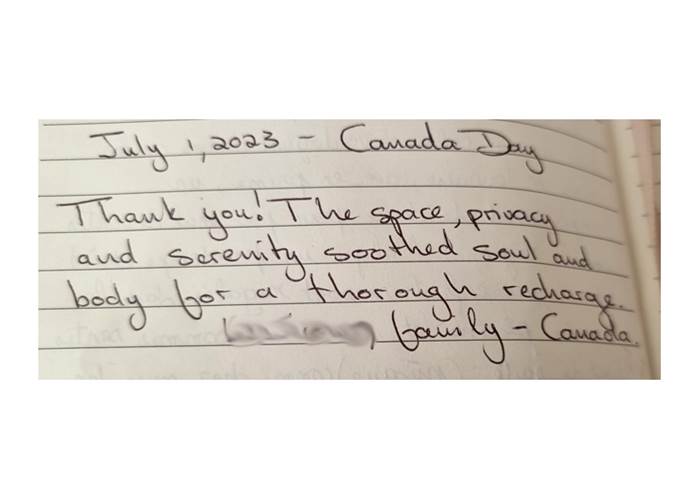 July 1, 2023 - Canada Day
Thank you! The space, privacy
and serenity soothed soul and
body for a thorough recharge.
family - Canada.